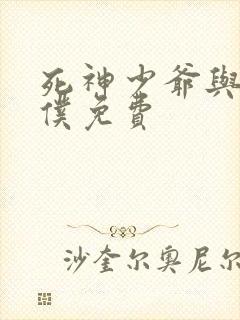 死神少爺與
僕免費
沙奎尔奥尼尔